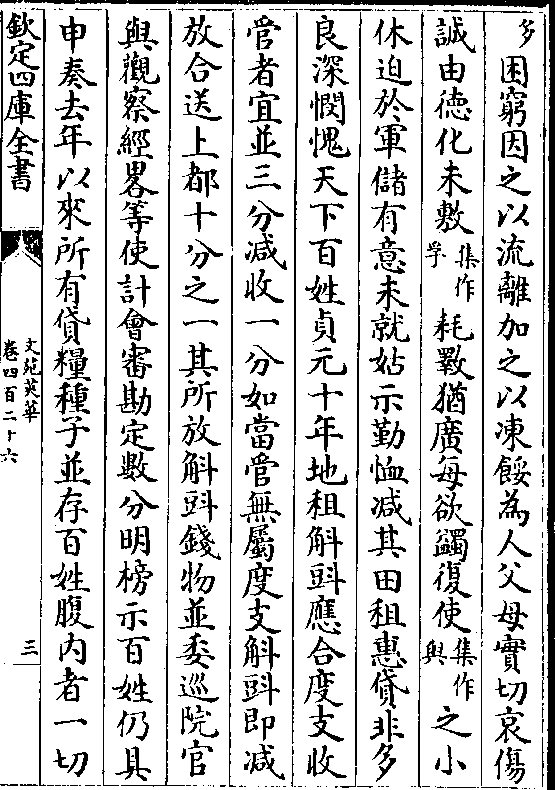 多困窮因之以流離加之以凍餒為人父母實切哀傷
誠由德化未敷集作孚耗斁猶廣每欲蠲復使集作與之小
休迫於軍儲有意未就姑示勤恤减其田租惠貸非多
良深憫愧天下百姓貞元十年地租斛㪷應合度支收
管者宜並三分减收一分如當管無屬度支斛㪷即减
放合送上都十分之一其所放斛㪷錢物並委巡院官
與觀察經畧等使計會審勘定數分明榜示百姓仍具
申奏去年以來所有貸糧種子並存百姓腹内者一切
欽定四庫全書
文苑英華
卷四百二十六
三